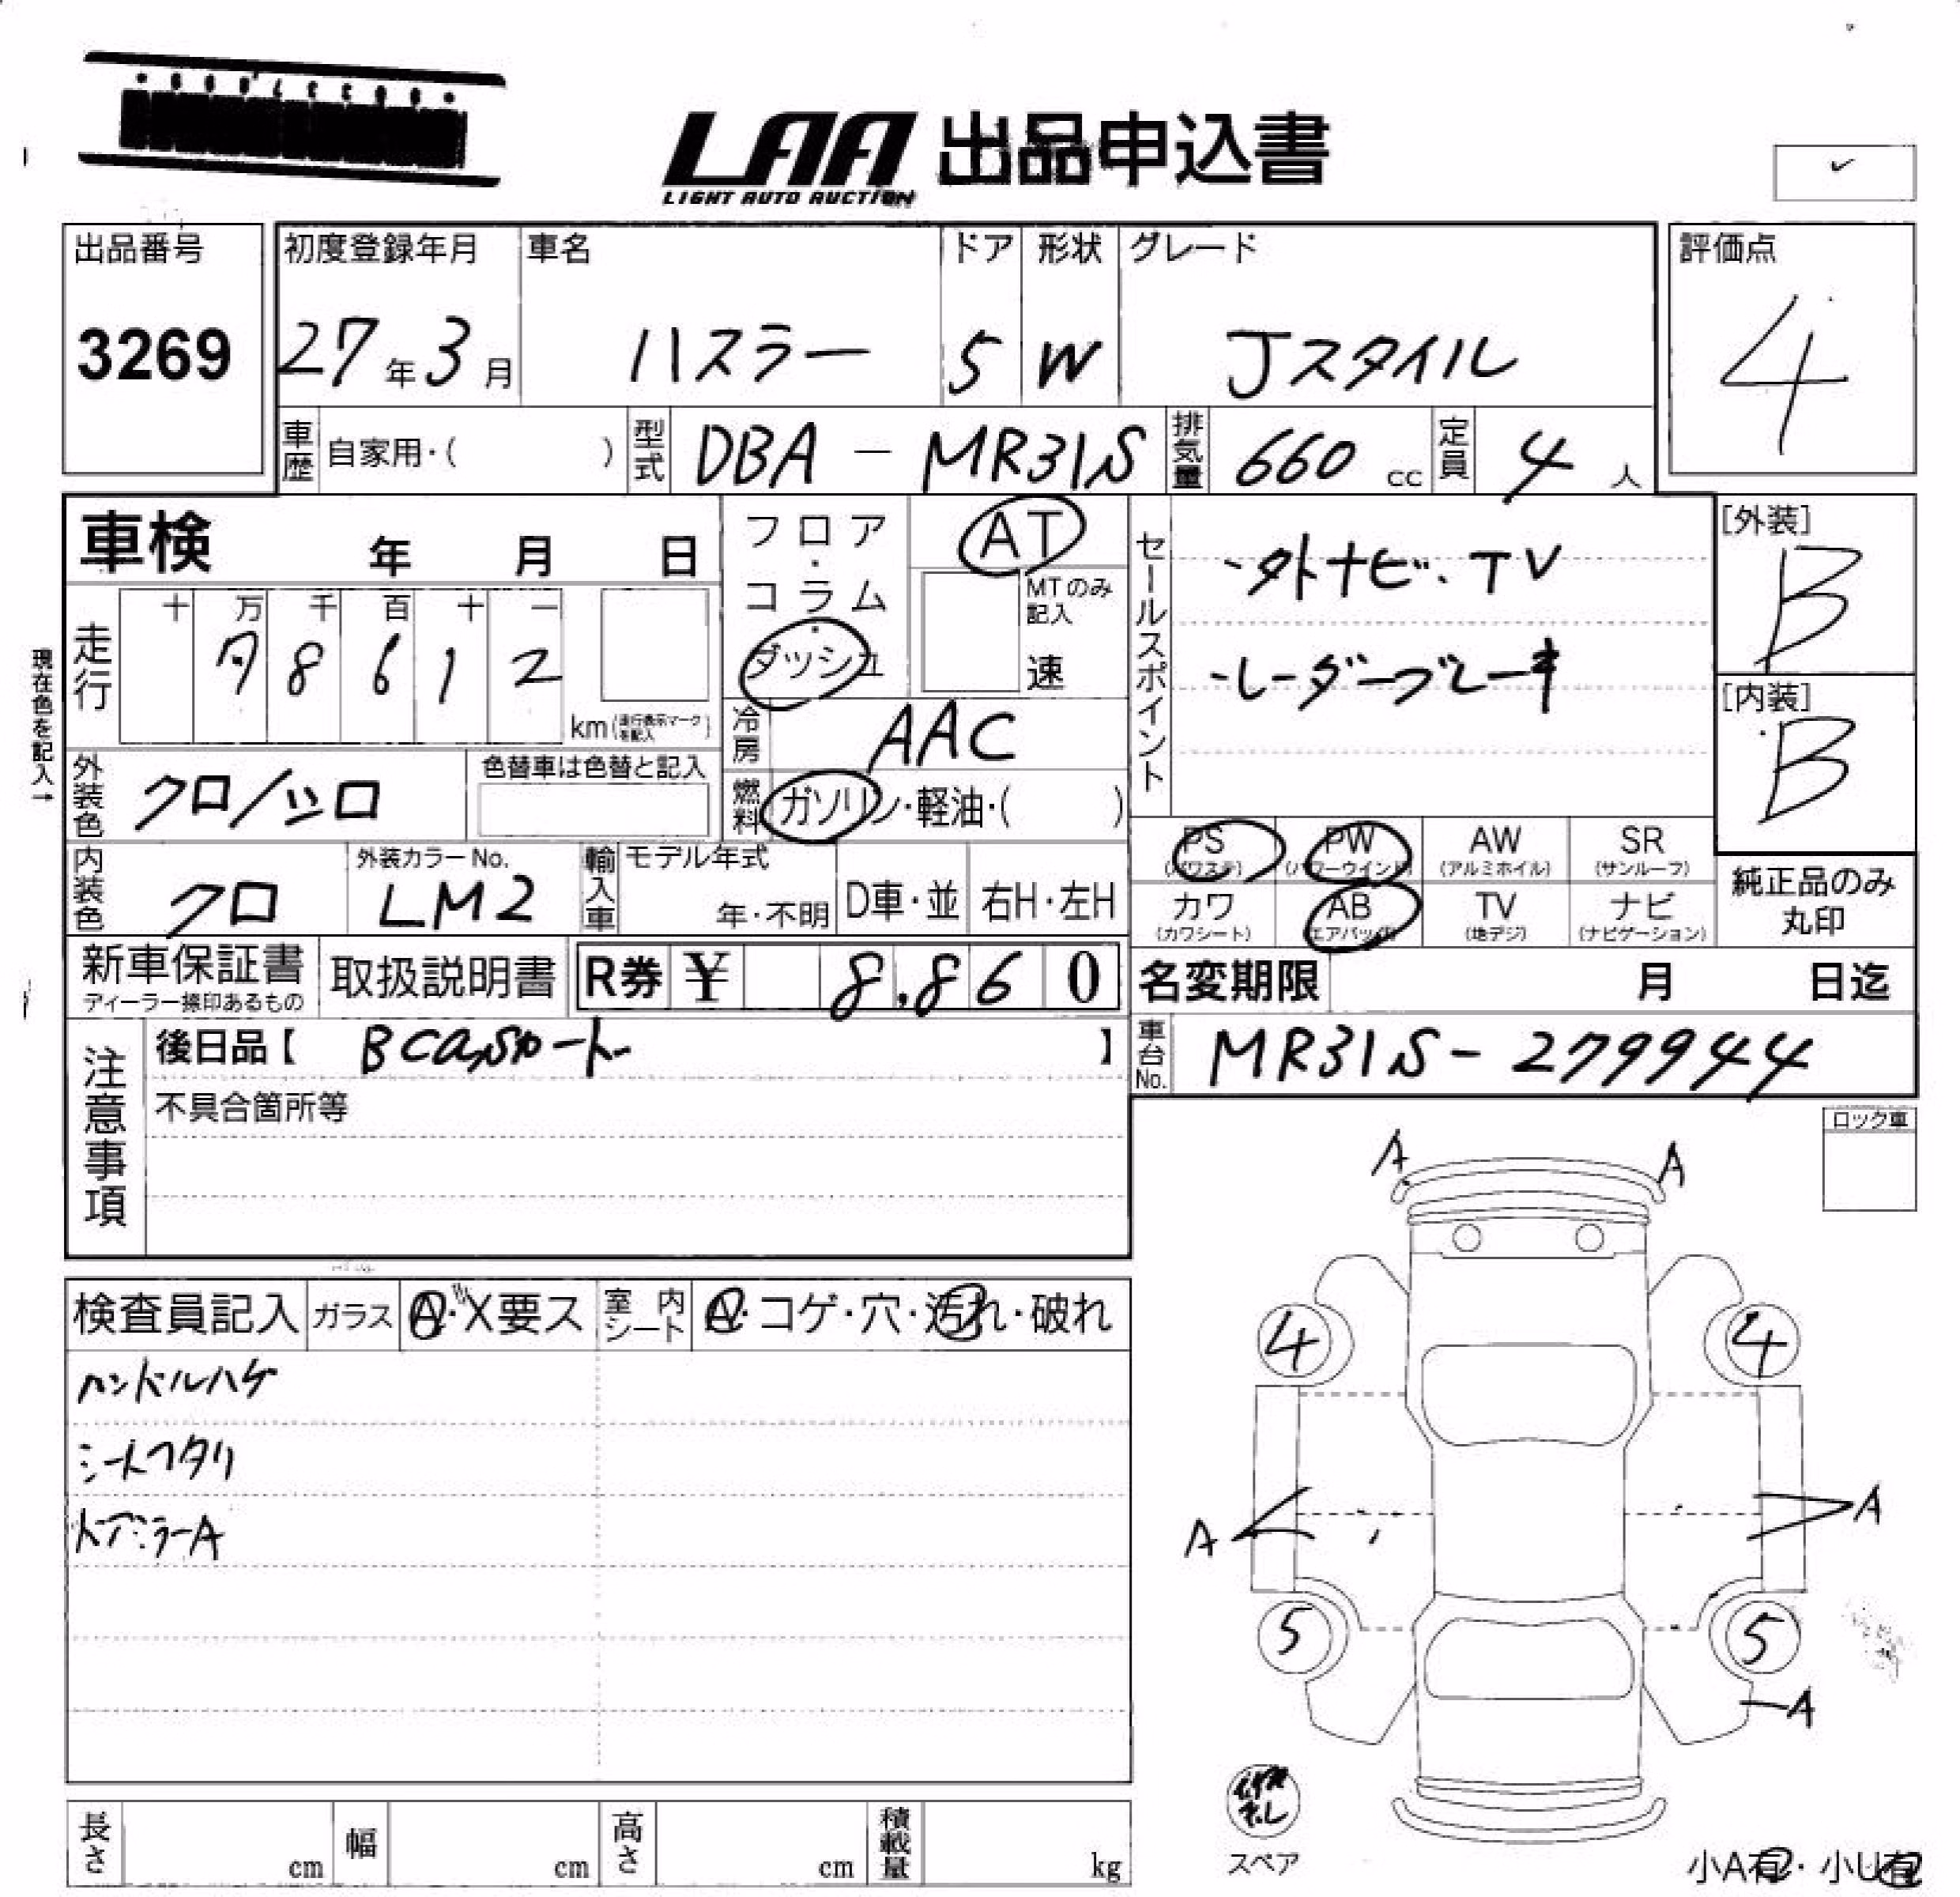 LAA 出品申込書
LIGHT AUTO AUCTION
出品番号
3269
初度登録年月
27年3月
車名
ハスラー
ドア
5
形状
W
グレード
Jスタイル
評価点
4
車歴 自家用・( )
型式 DBA - MR31S
排気量 660 cc
定員 4 人
車検 年 月 日
フロア・コラム・ダッシュ
AT
MTのみ記入
速
セールスポイント
-外ナビ.TV
-レーダーブレーキ
[外装]
B
[内装]
B
現在色を記入→
走行
十 万 千 百 十 一
7 8 6 1 2
km(走行表示マークを記入)
冷房 AAC
外装色 クロ/シロ
色替車は色替と記入
燃料 ガソリン・軽油・( )
内装色 クロ
外装カラーNo.
LM2
輸入車
モデル年式
年・不明
D車・並
右H・左H
PS (パワステ)
PW (パワーウインド)
AW (アルミホイル)
SR (サンルーフ)
カワ (カワシート)
AB (エアバック)
TV (地デジ)
ナビ (ナビゲーション)
純正品のみ
丸印
新車保証書
ディーラー捺印あるもの
取扱説明書
R券 ¥ 8.860
名変期限 月 日迄
注意事項
後日品【 BCasカード 】
車台No. MR31S-279944
不具合箇所等
ロック車
A A
検査員記入
ガラス A・X要ス
室内シート A・コゲ・穴・汚れ・破れ
ハンドルハゲ
シートヘタリ
ドアミラーA
4 4
A A
5 5
A
スペア
小A有・小U有
長さ cm
幅 cm
高さ cm
積載量 kg